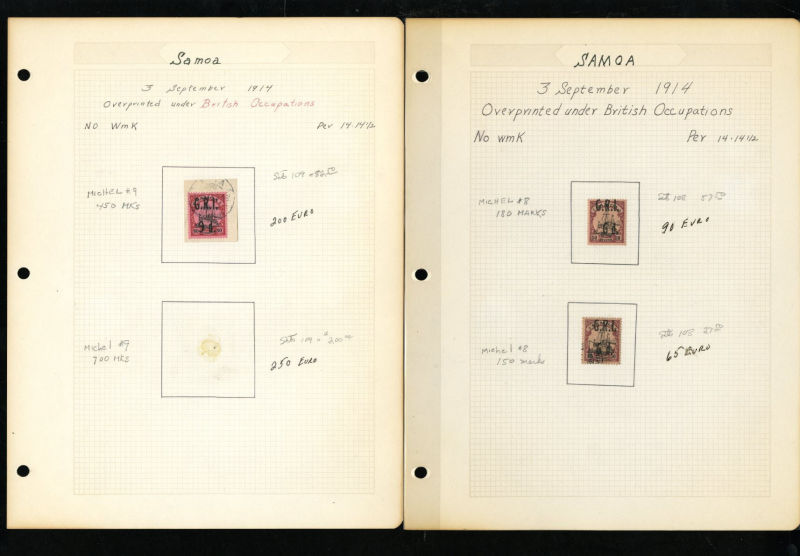 Samoa
3 September 1914
Overprinted under British Occupations
NO WmK
Per 14-14½
MicHEL #9
450 MKs
109
200 EURO
G.R.I.
9 d.
Michel #9
700 MKs
109
250 EURO
SAMOA
3 September 1914
Overprinted under British Occupations
No wmK
Per 14-14½
MicHEL #8
180 MARKS
108
90 EURO
G.R.I.
Michel #8
150 marks
108
65 EURO
G.R.I.